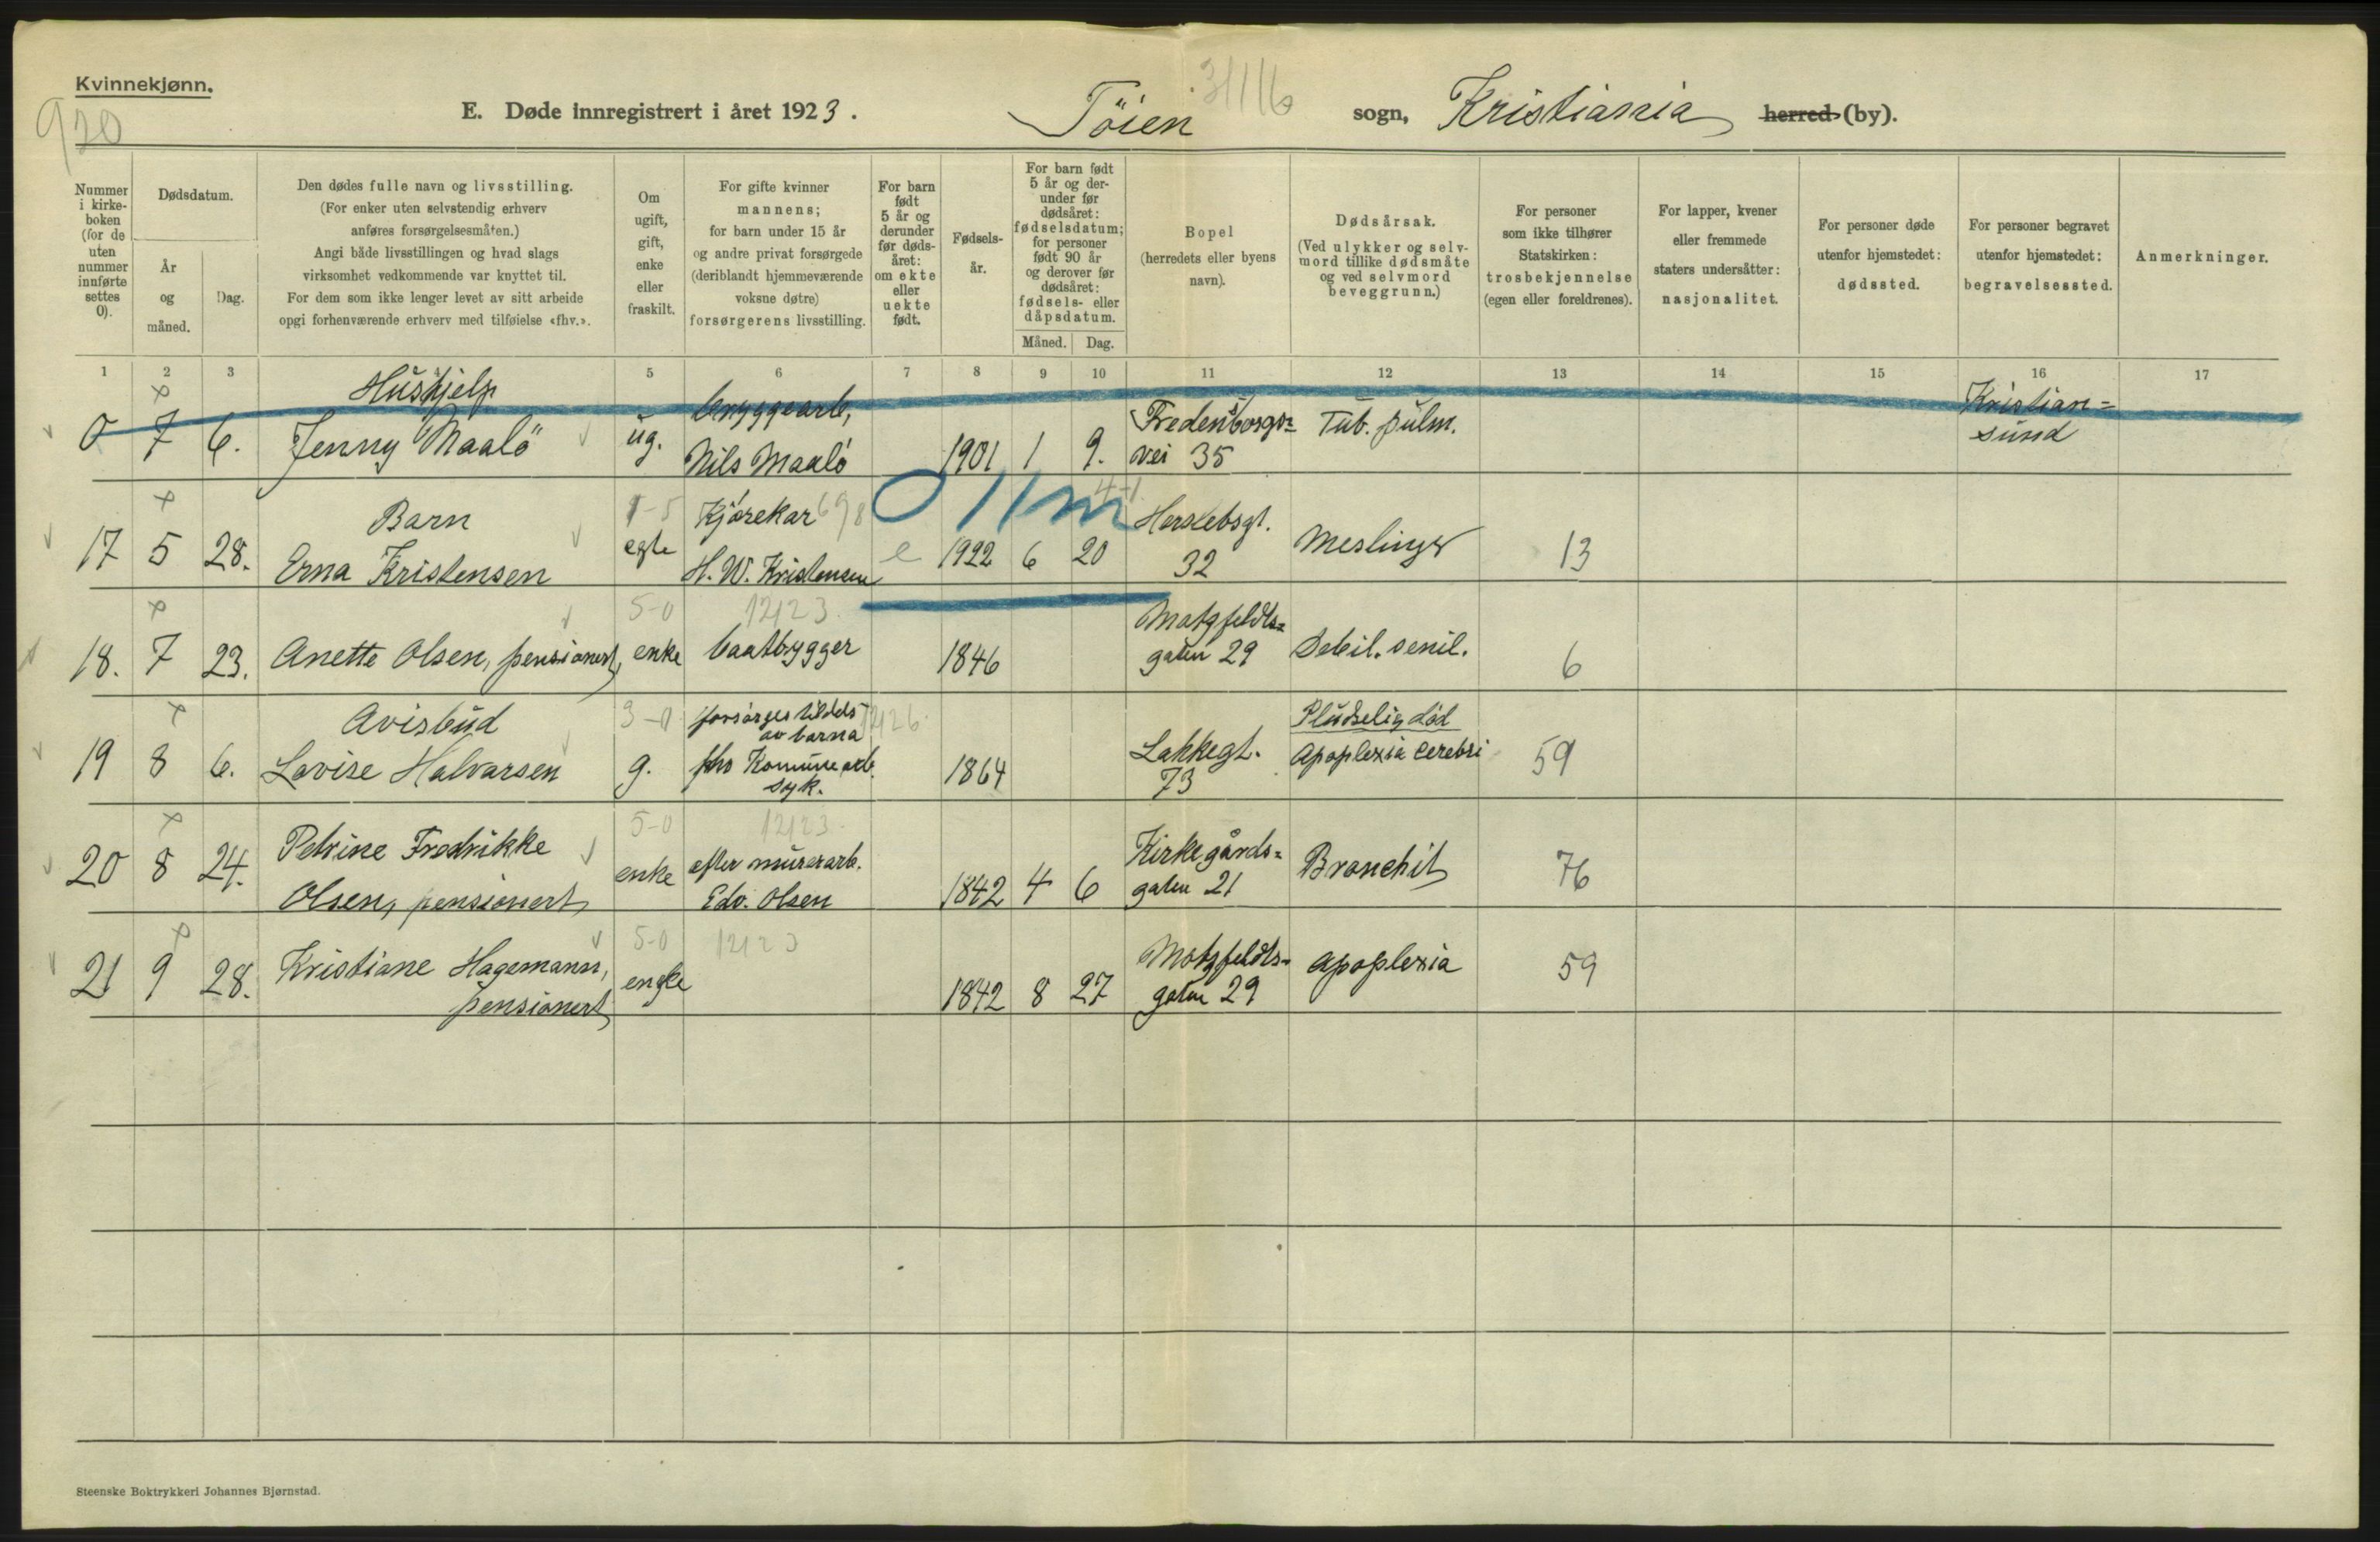 Kvinnekjønn.
920
E. Døde innregistrert i året 1923.
Töien
sogn, Kristiania herred (by).
Nummer i kirke- boken (for de uten nummer innførte settes 0).
Dødsdatum.
År og måned.
Dag.
Den dødes fulle navn og livsstilling.
(For enker uten selvstendig erhverv
anføres forsørgelsesmåten.)
Angi både livsstillingen og hvad slags
virksomhet vedkommende var knyttet til.
For dem som ikke lenger levet av sitt arbeide
opgi forhenværende erhverv med tilføielse «fhv.».
Om ugift, gift, enke eller fraskilt.
For gifte kvinner
mannens;
for barn under 15 år
og andre privat forsørgede
(deriblandt hjemmeværende
voksne døtre)
forsørgerens livsstilling.
For barn født 5 år og derunder før døds- året: om ekte eller uekte født.
Fødsels- år.
For barn født
5 år og der-
under før
dødsåret:
fødselsdatum;
for personer
født 90 år
og derover før
dødsåret:
fødsels- eller
dåpsdatum.
Måned. Dag.
Bopel
(herredets eller byens
navn).
Dødsårsak.
(Ved ulykker og selv-
mord tillike dødsmåte
og ved selvmord
beveggrunn.)
For personer
som ikke tilhører
Statskirken:
trosbekjennelse
(egen eller foreldrenes).
For lapper, kvener
eller fremmede
staters undersåtter:
nasjonalitet.
For personer døde
utenfor hjemstedet:
dødssted.
For personer begravet
utenfor hjemstedet:
begravelsessted.
Anmerkninger.
1 2 3 4 5 6 7 8 9 10 11 12 13 14 15 16 17
Hushjelp bryggearb, Fredensborgs= Tub. pulm. Kristian=
0 7 6. Jenny Maalö ug. Nils Maalö 1901 1 9. vei 35 sund
Barn 1-5 Kjörekar 698 4-1 Herslebsgt.
17 5 28. Erna Kristensen egte H. W. Kristensen e 1922 6 20 32 Meslinger 13
5-0 12123 Motzfeldts=
18. 7 23. Anette Olsen, pensionert, enke baatbygger 1846 gaten 29 Debil. senil. 6
Avisbud 3-0 forsörges tildels av barna 12126 Pludselig död
19 8 6. Lovise Halvarsen g. fhv Komunearb. syk. 1864 Lakkegt. 73 Apoplexia cerebri 59
5-0 12123
20 8 24. Petrine Fredrikke enke efter murerarb. Kirkegårds= Bronchit 76
Olsen, pensionert, Edv. Olsen 1842 4 6 gaten 21
5-0 12123
21 9 28. Kristiane Hagemann, enke Motzfeldts= Apoplexia 59
pensionert 1842 8 27 gaten 29
Steenske Boktrykkeri Johannes Bjørnstad.